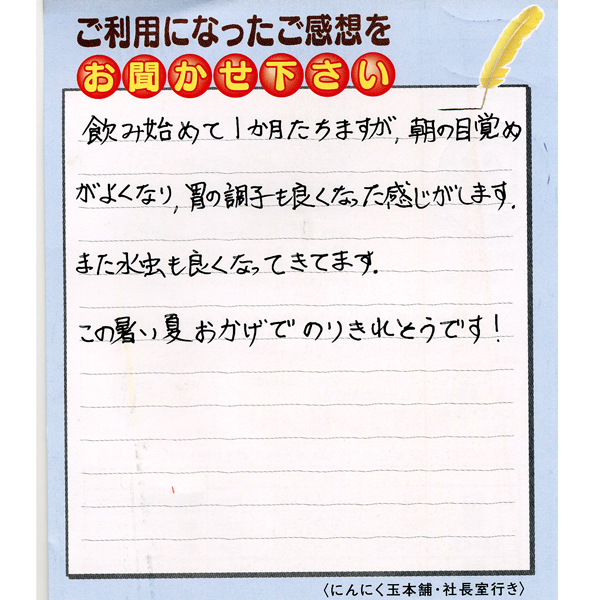 ご利用になったご感想を
お聞かせ下さい
飲み始めて1か月たちますが,朝の目覚め
がよくなり,胃の調子も良くなった感じがします.
また水虫も良くなってきてます.
この暑い夏おかげでのりきれそうです!
〈にんにく玉本舗・社長室行き〉